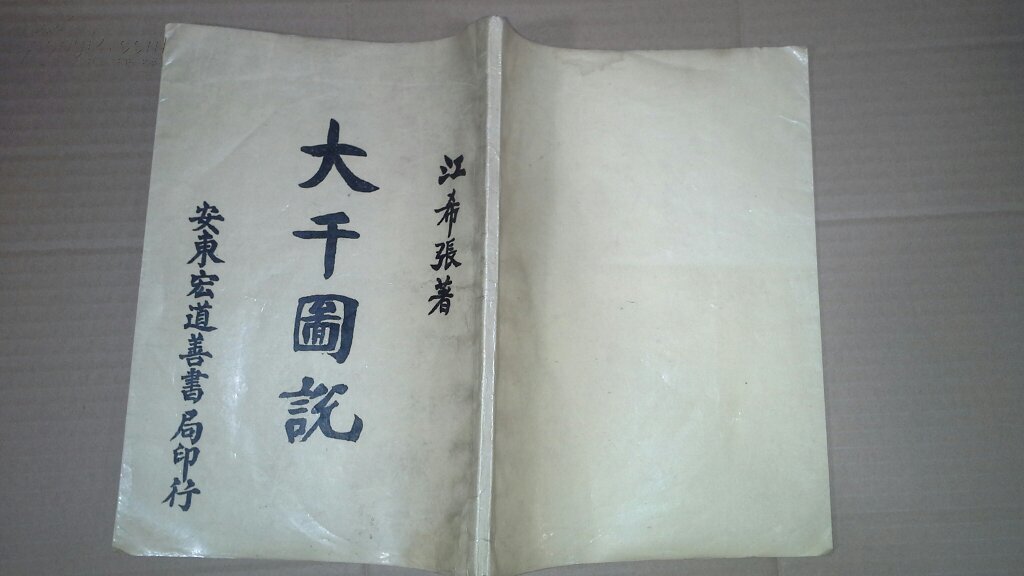 江希張著
大千圖説
安東宏道善書局印行